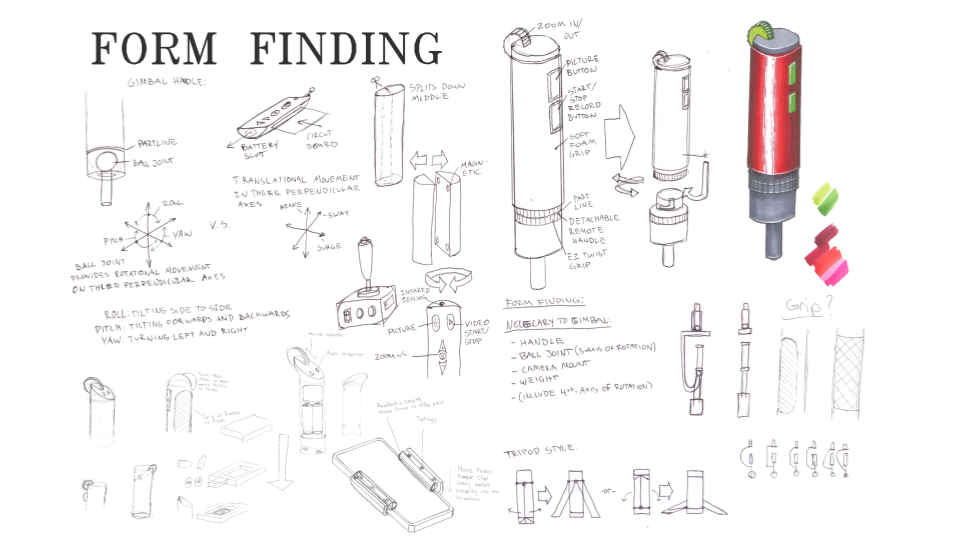 FORM FINDING
GIMBAL HANDLE:
PARTLINE
BALL JOINT
ROLL
PITCH
YAW
V.S.
BALL JOINT
PROVIDES ROTATIONAL MOVEMENT
ON THREE PERPENDICULAR AXES
ROLL: TILTING SIDE TO SIDE
PITCH: TILTING FORWARDS AND BACKWARDS
YAW: TURNING LEFT AND RIGHT
BATTERY
SLOT
CIRCUT
BOARD
TRANSLATIONAL MOVEMENT
IN THREE PERPENDICULAR
AXES
HEAVE
SWAY
SURGE
SPLITS DOWN
MIDDLE
MAGN-
ETIC
INFARED
SENSOR
PICTURE
VIDEO
START/
STOP
ZOOM +/-
Springs
ZOOM IN/
OUT
PICTURE
BUTTON
START/
STOP
RECORD
BUTTON
SOFT
FOAM
GRIP
PART
LINE
DETACHABLE
REMOTE
HANDLE
EZ TWIST
GRIP
FORM FINDING:
NECECARY TO GIMBAL:
- HANDLE
- BALL JOINT (3-AXIS OF ROTATION)
- CAMERA MOUNT
- WEIGHT
- (INCLUDE 4th-AXIS OF ROTATION)
Grip?
TRIPOD STYLE:
-or-